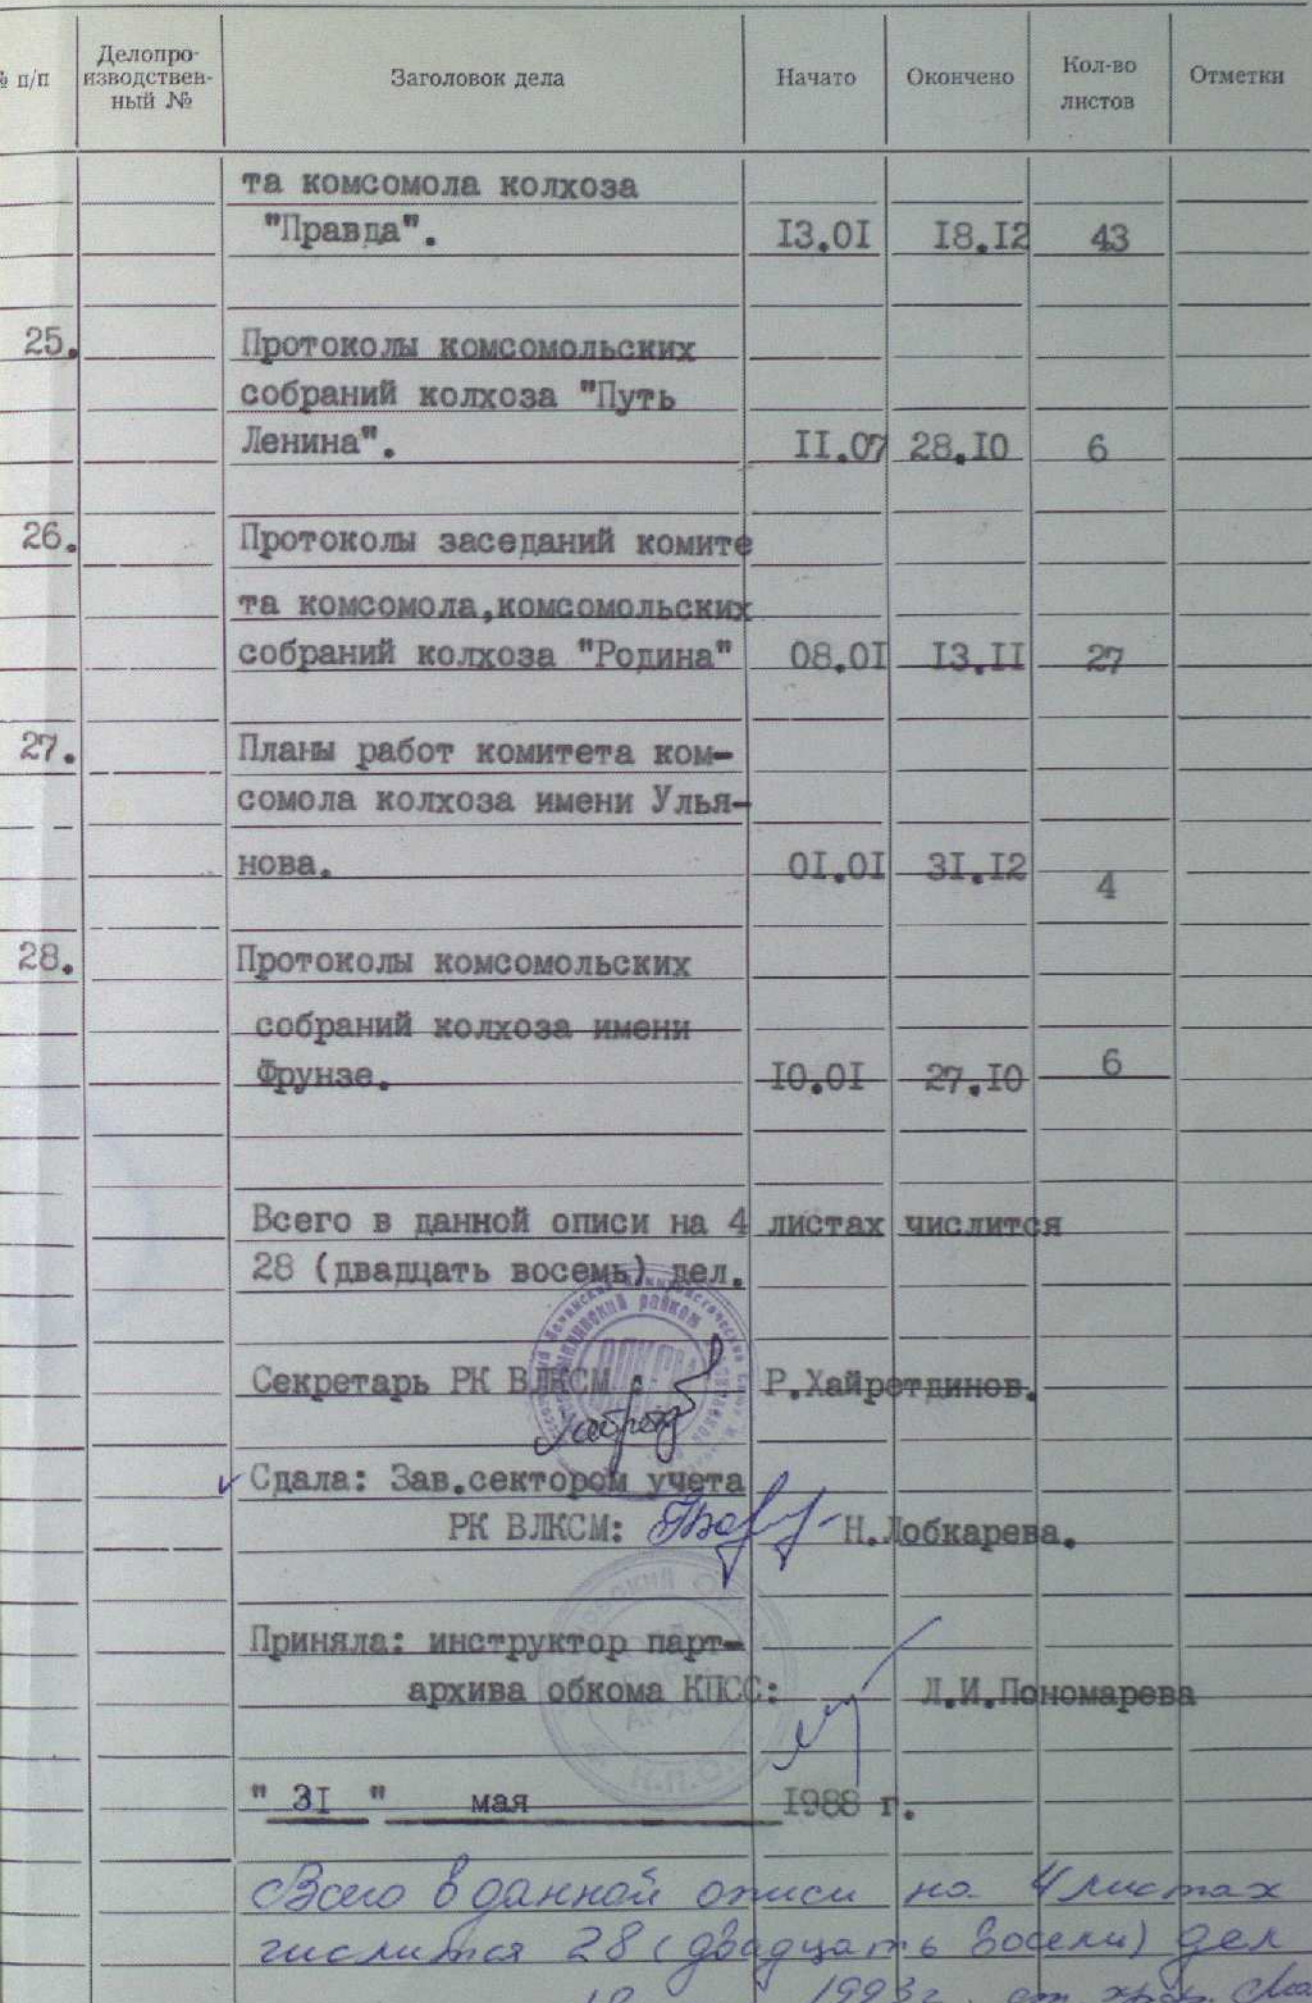 № п/п Делопро- Заголовок дела Начато Окончено Кол-во Отметки
изводствен- листов
ный №
та комсомола колхоза
"Правда". I3.0I I8.I2 43
25. Протоколы комсомольских
собраний колхоза "Путь
Ленина". II.07 28.I0 6
26. Протоколы заседаний комите
та комсомола,комсомольских
собраний колхоза "Родина" 08.0I I3.II 27
27. Планы работ комитета ком-
сомола колхоза имени Улья-
нова. 0I.0I 3I.I2 4
28. Протоколы комсомольских
собраний колхоза имени
Фрунзе. I0.0I 27.I0 6
Всего в данной описи на 4 листах числится
28 (двадцать восемь) дел.
Секретарь РК ВЛКСМ : Р.Хайретдинов.
Сдала: Зав.сектором учета
РК ВЛКСМ: Н.Лобкарева.
Приняла: инструктор парт-
архива обкома КПСС: Л.И.Пономарева
" 3I " мая I988 г.
Всего в данной описи на 4 листах
числится 28 (двадцать восемь) дел
1993г.